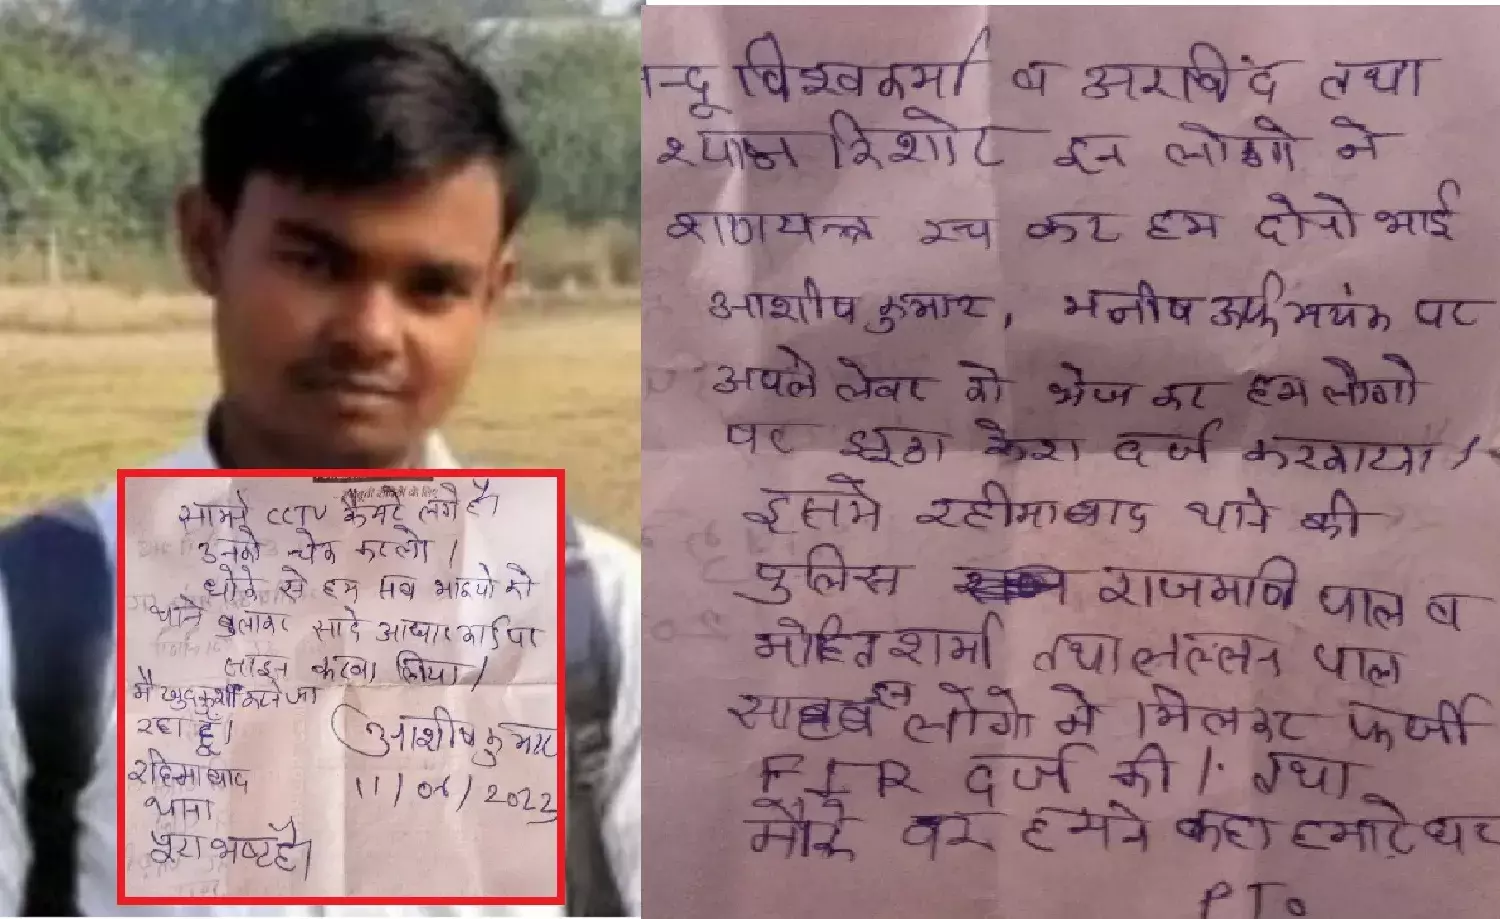 न्दू विश्वकर्मा व अरविंद तथा
श्याम किशोर इन लोगो ने
शणयन्त्र रच कर हम दोनो भाई
आशीष कुमार, मनीष उर्फ मयंक पर
अपने लेवर को भेज कर हम लोगो
पर झूठा केश दर्ज करवाया।
इसमे रहीमाबाद थाने की
पुलिस राजमणि पाल व
मोहित शर्मा तथा लल्लन पाल
इन लोगो ने मिलकर फर्जी
FIR दर्ज की। तथा
मौके पर हमने कहा हमारे घर
PTO
सामने CCTV कैमरे लगे है।
उनको चेक करलो।
धोके से हम सब भाइयो को
थाने बुलाकर सादे आधार कार्ड पर
साइन करवा लिया।
मै खुदकुशी करने जा
रहा हूँ।
रहिमाबाद
थाना
पूरा भ्रष्ट है।
आशीष कुमार
11/06/2023